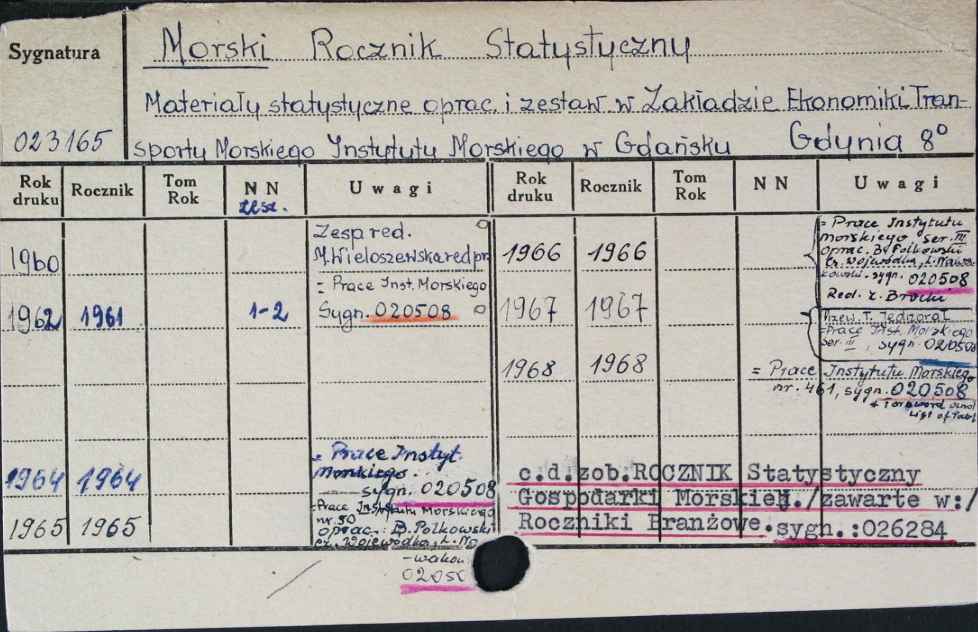 Sygnatura
023165
Morski Rocznik Statystyczny
Materiały statystyczne oprac. i zestaw. w Zakładzie Ekonomiki Tran-
sportu Morskiego Instytutu Morskiego w Gdańsku Gdynia 8°
Rok druku Rocznik Tom Rok NN zesz. Uwagi
1960 Zesp. red.
M. Wieloszewska red pr
= Prace Inst. Morskiego
1962 1961 1-2 Sygn. 020508
1964 1964 = Prace Instyt.
Morskiego
sygn. 020508
1965 1965 = Prace Instytutu Morskiego
nr. 50
oprac. B. Polkowski
Wojewódka, L. No
-wakow
02050
Rok druku Rocznik Tom Rok NN Uwagi
1966 1966 = Prace Instytutu
morskiego ser. III
oprac. B. Polkowski
Wojewódka, L. Nowa
kowski. sygn. 020508
Red. Z. Brocki
1967 1967
= Prace Inst. Morskiego
ser. III, sygn. 020508
1968 1968 = Prace Instytutu Morskiego
nr. 461, sygn. 020508
List of Tabl
c.d.zob.ROCZNIK Statystyczny
Gospodarki Morskiej./zawarte w:/
Roczniki Branżowe.sygn.:026284